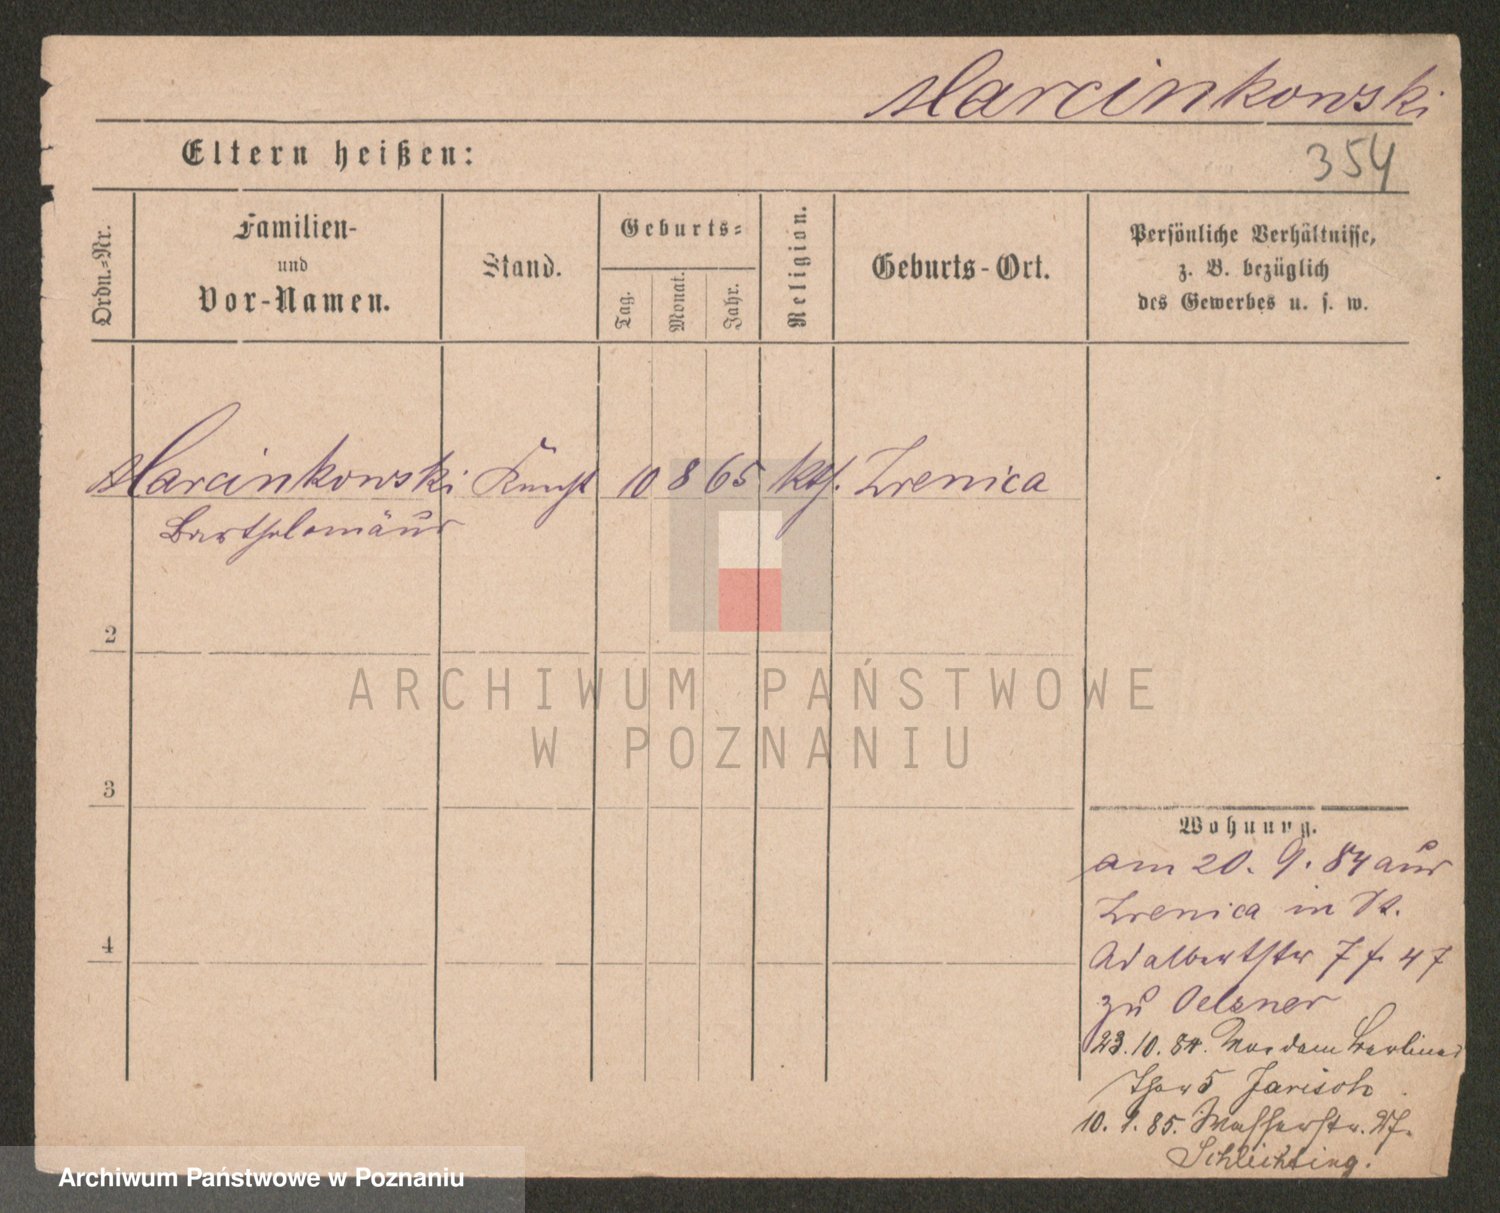 Marcinkowski
Eltern heißen:
354
Ordn.-Nr.
Familien-
und
Vor-Namen.
Stand.
Geburts-
Tag.
Monat.
Jahr.
Religion.
Geburts-Ort.
Persönliche Verhältnisse,
z. B. bezüglich
des Gewerbes u. s. w.
Marcinkowski Knecht 10 8 65 kth. Zrenica
Bartholomäus
2
3
4
ARCHIWUM PAŃSTWOWE
W POZNANIU
Wohnung.
am 20. 9. 84 aus
Zrenica in
Adalbertstr 7 47
zu Oelsner
23.10.84. Vor dem Berliner
Thor 5 Jarisch
10. 9. 85. Wasserstr.
Schlichting.
Archiwum Państwowe w Poznaniu